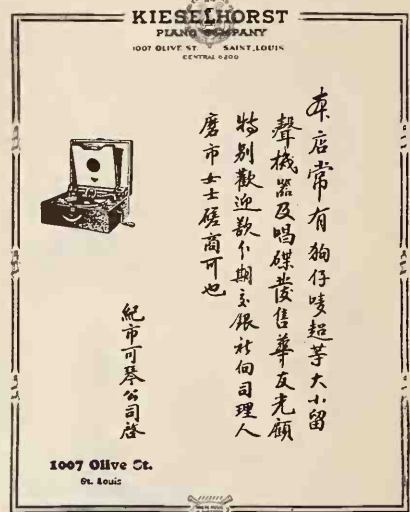 KIESELHORST
PIANO COMPANY
1007 OLIVE ST. SAINT LOUIS
CENTRAL 6200
本店常有狗仔嘜超等大小留
聲機器及唱碟發售華友光顧
特别歡迎欲分期交銀祈向司理人
磨市女士磋商可也
紀市可琴公司啓
1007 Olive St.
St. Louis